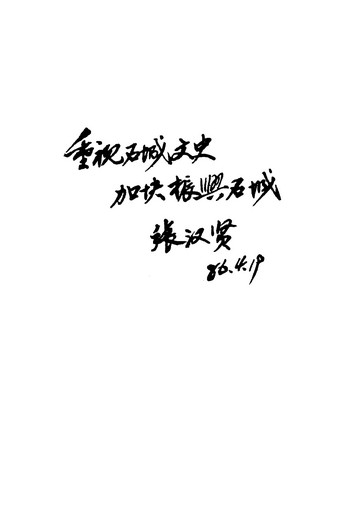 重视石城文史
加快振興石城
張汉贤
86.4.19